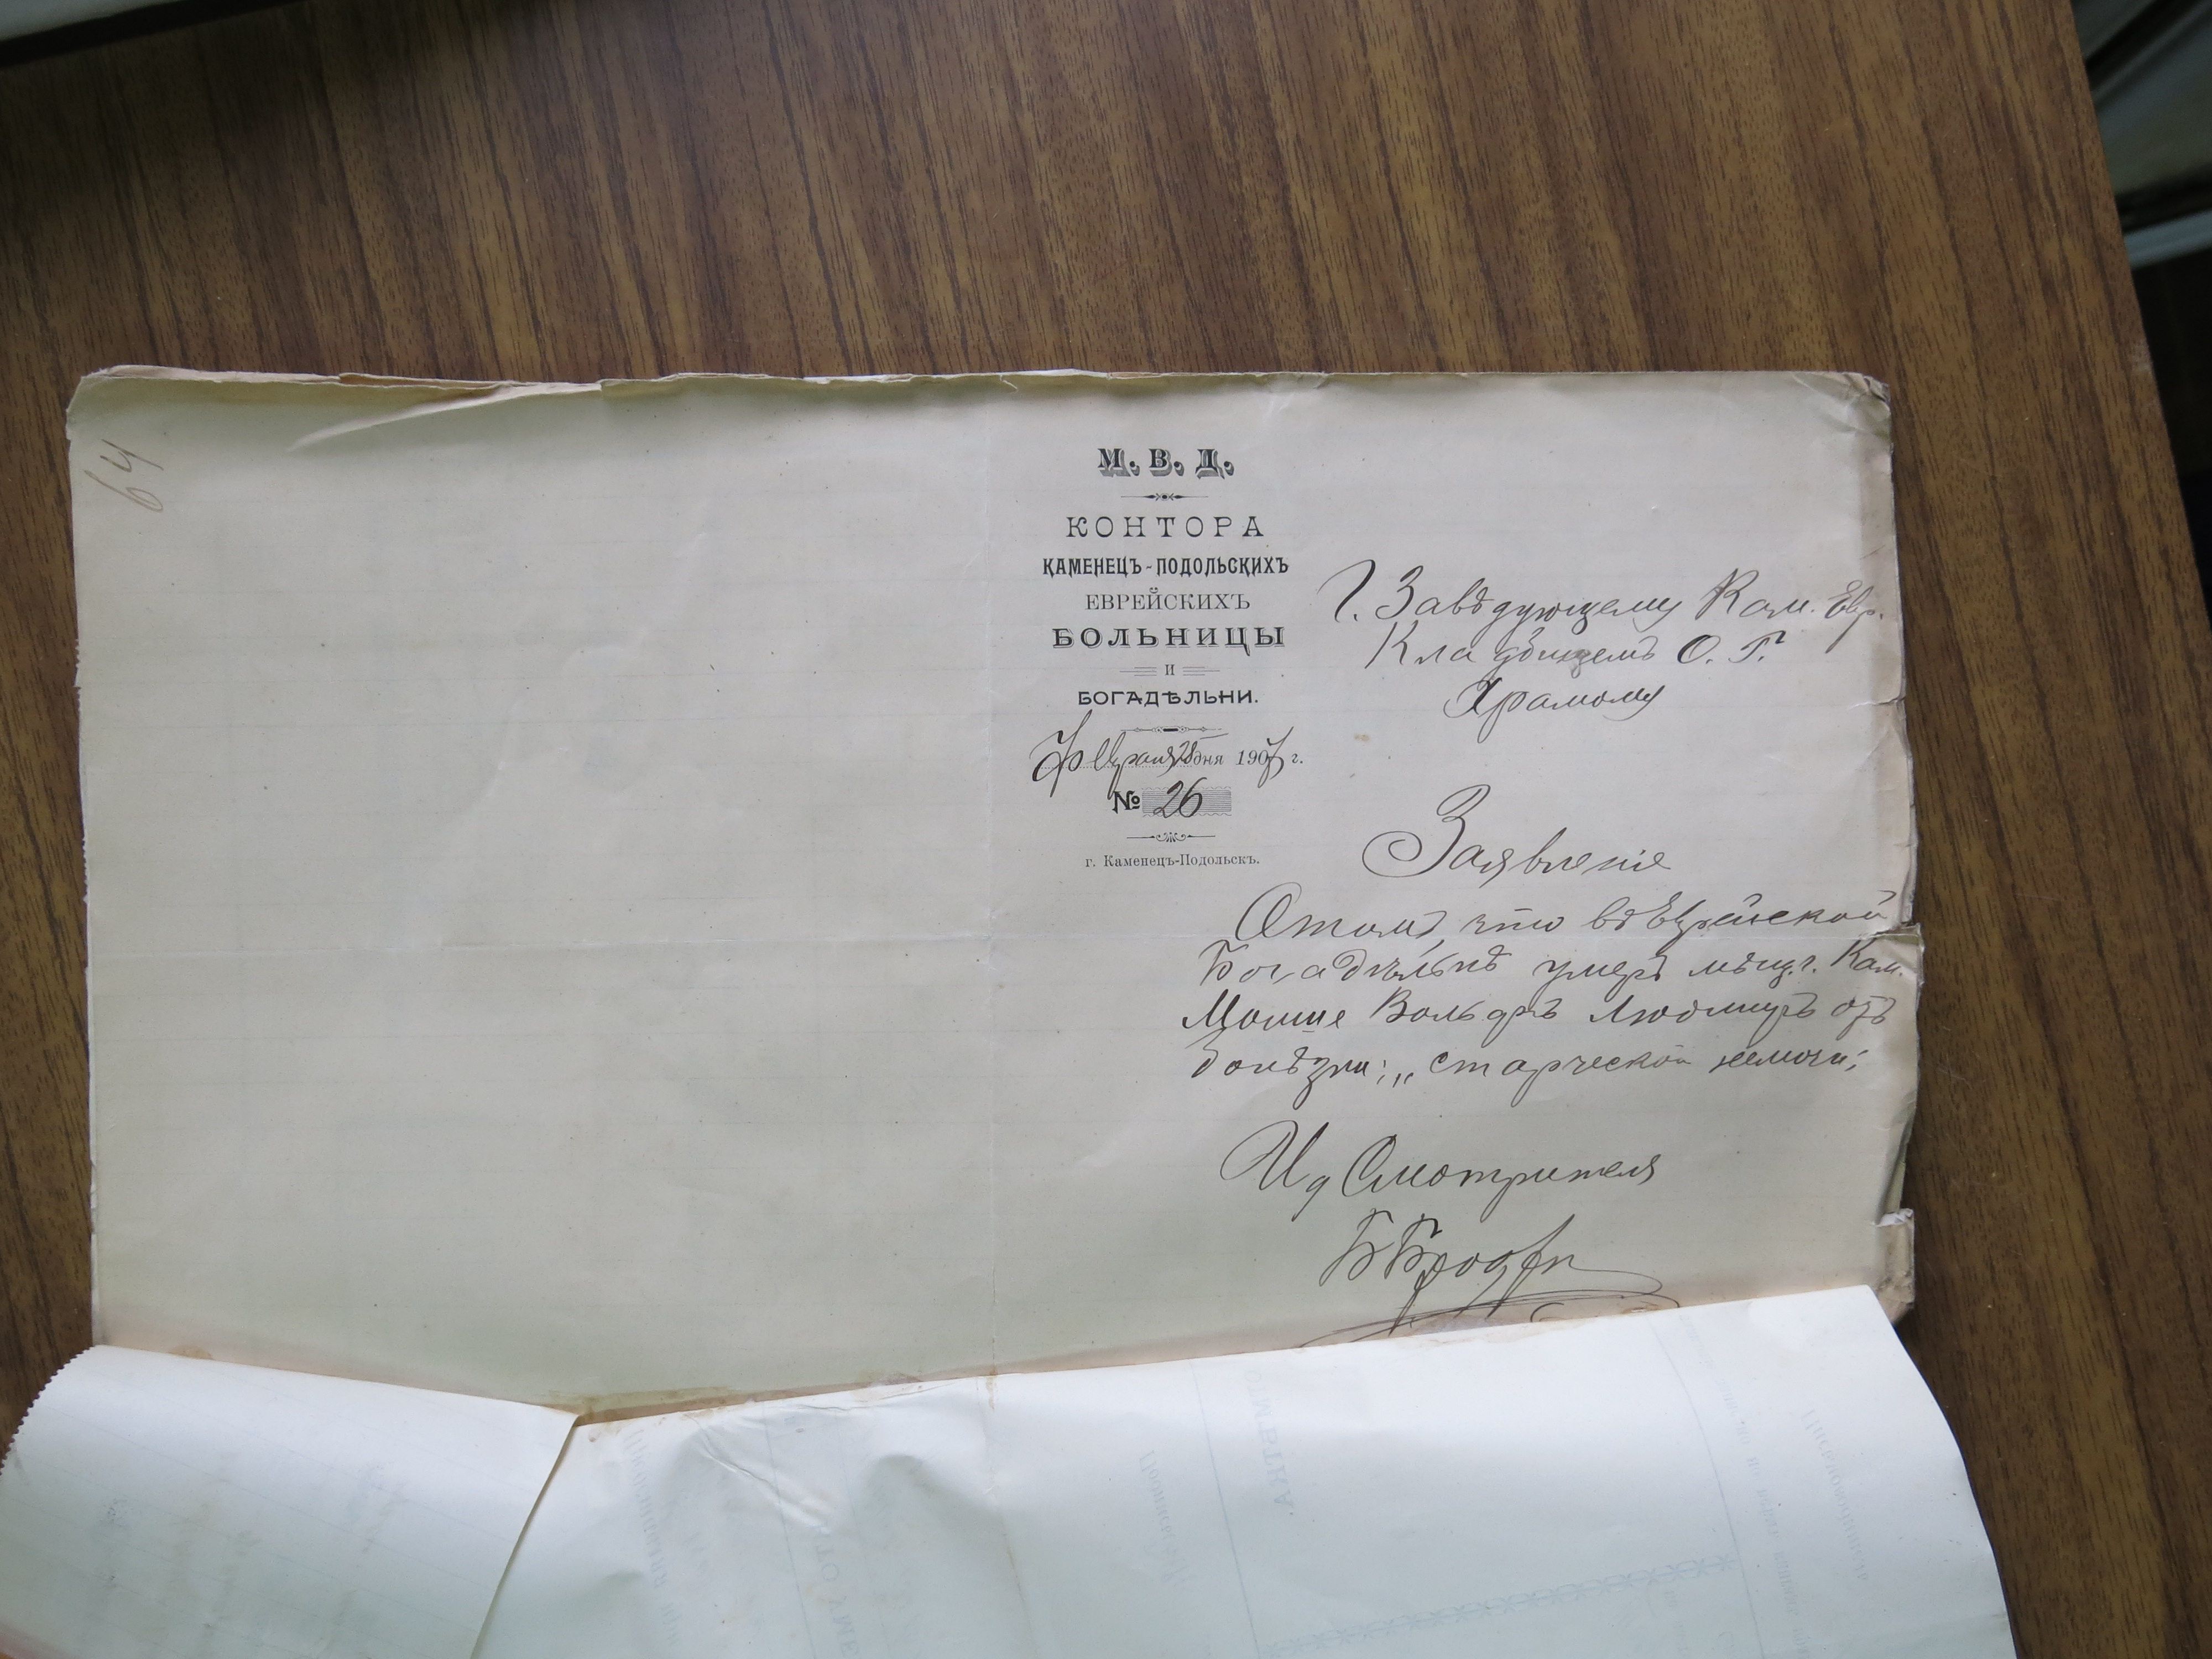 64
М. В. Д.
КОНТОРА
КАМЕНЕЦЪ-ПОДОЛЬСКИХЪ
ЕВРЕЙСКИХЪ
БОЛЬНИЦЫ
И
БОГАДѢЛЬНИ.
Февраля 28 дня 1907 г.
№ 26
г. Каменецъ-Подольскъ.
Г. Завѣдующему Кам. Евр.
Кладбищемъ О. Г.
Храмому
Заявленіе
О томъ, что въ Еврейской
Богадѣльнѣ умеръ мѣщ. г. Кам.
Мошие Вольфъ Людмиръ отъ
болѣзни: „старческой немочи;
Ид Смотрителя
Б Бродск